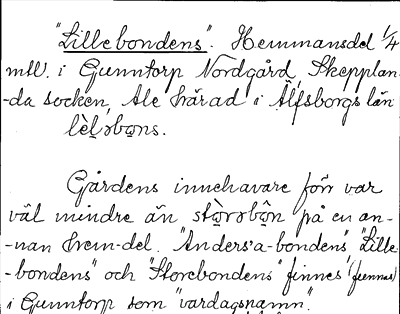 "Lillebondens". Hemmansdel 1/4
mtl. i Gunntorp Nordgård, Skepplan-
-da socken, Ale härad i Älfsborgs län
lèḷəbωns.
Gårdens innehavare förr var
väl mindre än stωrəbωn på en an-
-nan hem-del. "Anders'a-bondens", "Lille
-bondens" och "Storebondens" finnes (funnes)
i Gunntorp som "vardagsnamn".